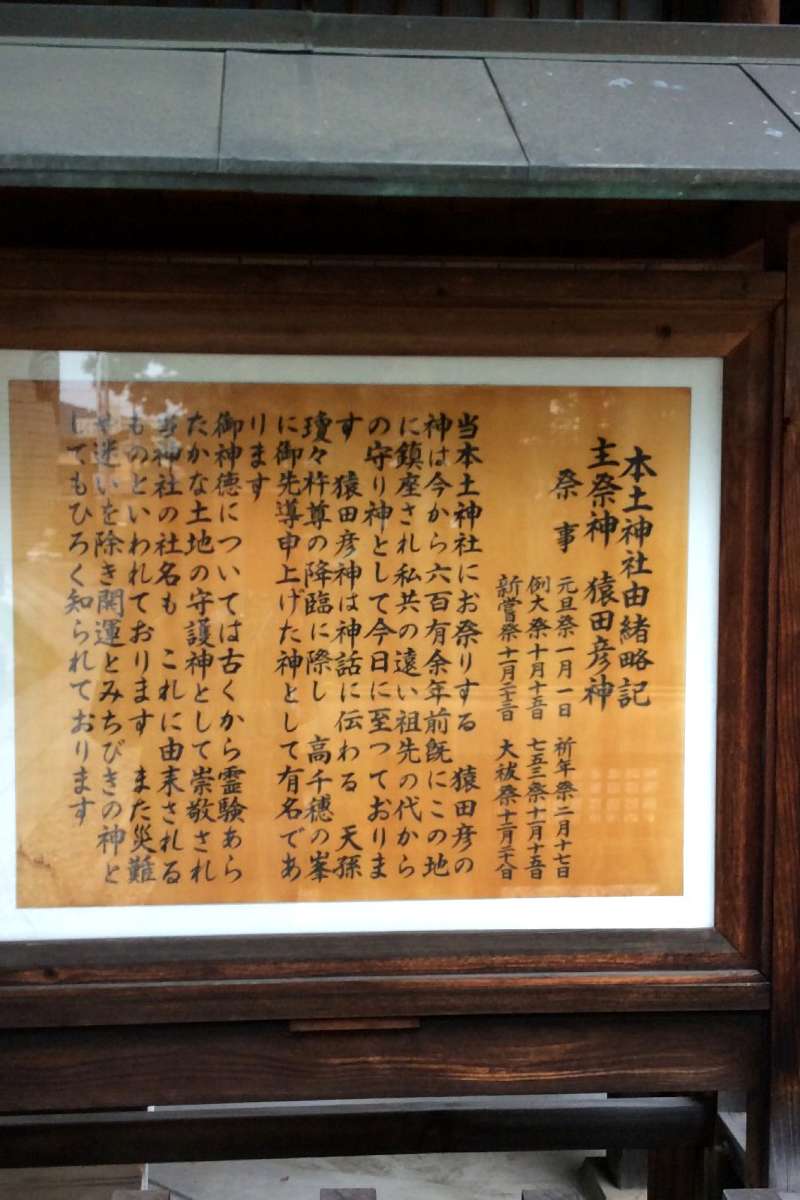 本土神社由緒略記
主祭神 猿田彦神
祭事
元旦祭一月一日 祈年祭二月十七日
例大祭十月十五日 七五三祭十一月十五日
新嘗祭十一月二十三日 大祓祭十二月二十八日
当本土神社にお祭りする 猿田彦の
神は今から六百有余年前既にこの地
に鎮座され私共の遠い祖先の代から
の守り神として今日に至つておりま
す 猿田彦神は神話に伝わる 天孫
瓊々杵尊の降臨に際し 高千穂の峯
に御先導申上げた神として有名であ
ります
御神徳については古くから霊験あら
たかな土地の守護神として崇敬され
当神社の社名も これに由来される
ものといわれております また災難
や迷いを除き開運とみちびきの神と
してもひろく知られております